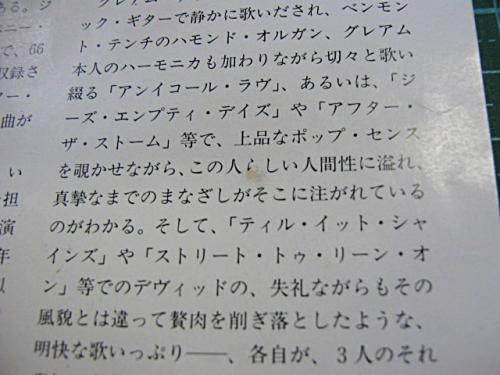 ック・ギターで静かに歌いだされ、ベンモン
ト・テンチのハモンド・オルガン、グレアム
本人のハーモニカも加わりながら切々と歌い
綴る「アンイコール・ラヴ」、あるいは、「ジ
ーズ・エンプティ・デイズ」や「アフター・
ザ・ストーム」等で、上品なポップ・センス
を覗かせながら、この人らしい人間性に溢れ、
真摯なまでのまなざしがそこに注がれている
のがわかる。そして、「ティル・イット・シャ
インズ」や「ストリート・トゥ・リーン・オ
ン」等でのデヴィッドの、失礼ながらもその
風貌とは違って贅肉を削ぎ落としたような、
明快な歌いっぷり——、各自が、3人のそれ
ニー・
で、66
収録さ
ター・
曲が
い
担
演
年